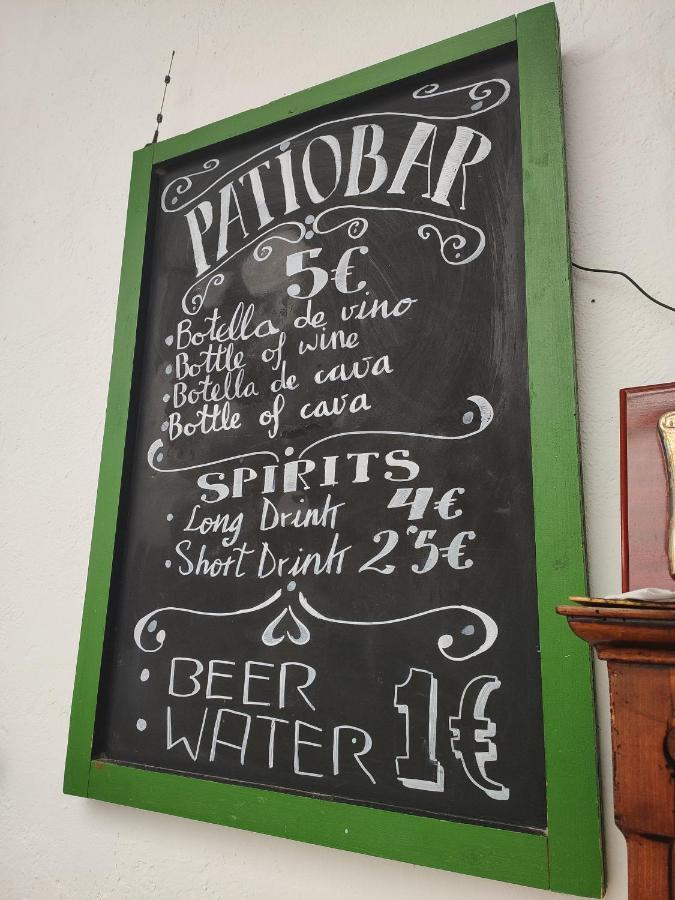 PATIOBAR
5€
• Botella de vino
• Bottle of wine
• Botella de cava
• Bottle of cava
SPIRITS
• Long Drink 4€
• Short Drink 2'5€
• BEER
• WATER 1€